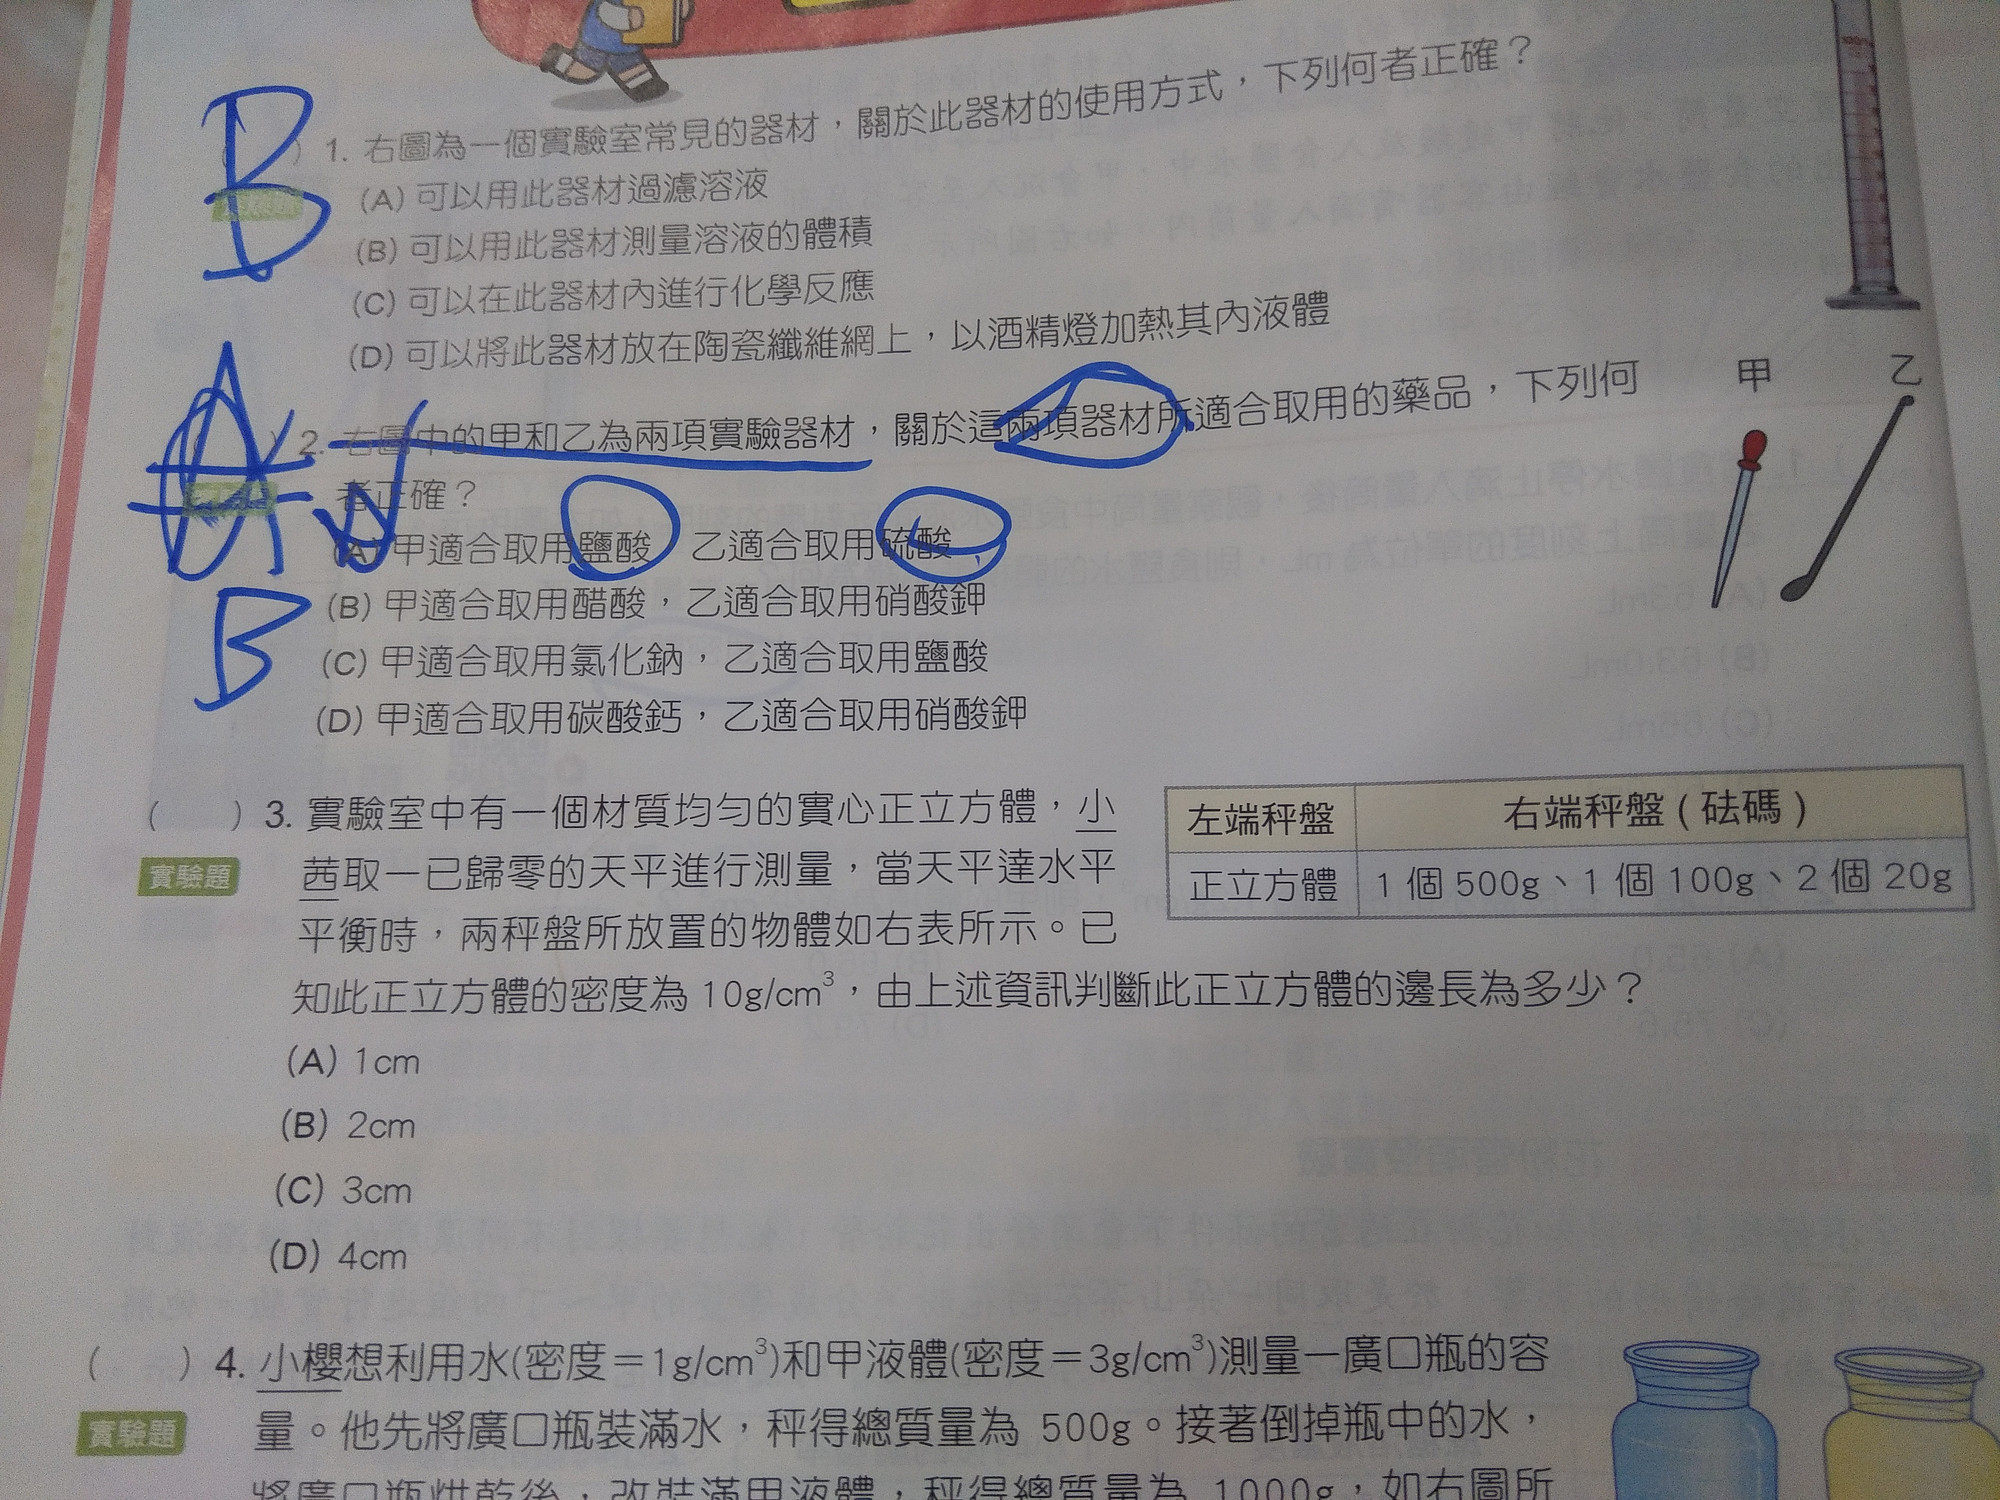 B
( ) 1. 右圖為一個實驗室常見的器材，關於此器材的使用方式，下列何者正確？
(A) 可以用此器材過濾溶液
(B) 可以用此器材測量溶液的體積
(C) 可以在此器材內進行化學反應
(D) 可以將此器材放在陶瓷纖維網上，以酒精燈加熱其內液體
甲 乙
) 2. 右圖中的甲和乙為兩項實驗器材，關於這兩項器材所適合取用的藥品，下列何
者正確？
(A) 甲適合取用鹽酸，乙適合取用硫酸
B
(B) 甲適合取用醋酸，乙適合取用硝酸鉀
(C) 甲適合取用氯化鈉，乙適合取用鹽酸
(D) 甲適合取用碳酸鈣，乙適合取用硝酸鉀
( ) 3. 實驗室中有一個材質均勻的實心正立方體，小
實驗題
茜取一已歸零的天平進行測量，當天平達水平
平衡時，兩秤盤所放置的物體如右表所示。已
知此正立方體的密度為 10g/cm³，由上述資訊判斷此正立方體的邊長為多少？
左端秤盤 右端秤盤（砝碼）
正立方體 1 個 500g、1 個 100g、2 個 20g
(A) 1cm
(B) 2cm
(C) 3cm
(D) 4cm
( ) 4. 小櫻想利用水(密度＝1g/cm³)和甲液體(密度＝3g/cm³)測量一廣口瓶的容
實驗題
量。他先將廣口瓶裝滿水，秤得總質量為 500g。接著倒掉瓶中的水，
將廣口瓶烘乾後，改裝滿甲液體，秤得總質量為 1000g，如右圖所